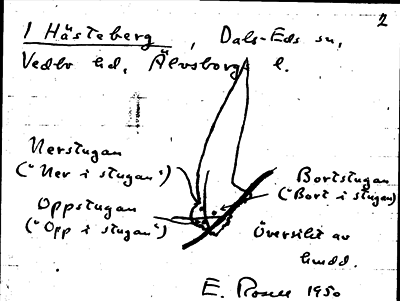 2
1 Hästeberg, Dals-Eds sn,
Vedbo hd, Älvsborgs l.
Nerstugan
("Ner i stugan")
Oppstugan
("Opp i stugan")
Bortstugan
("Bort i stugan)
Översikt av
E. 1950